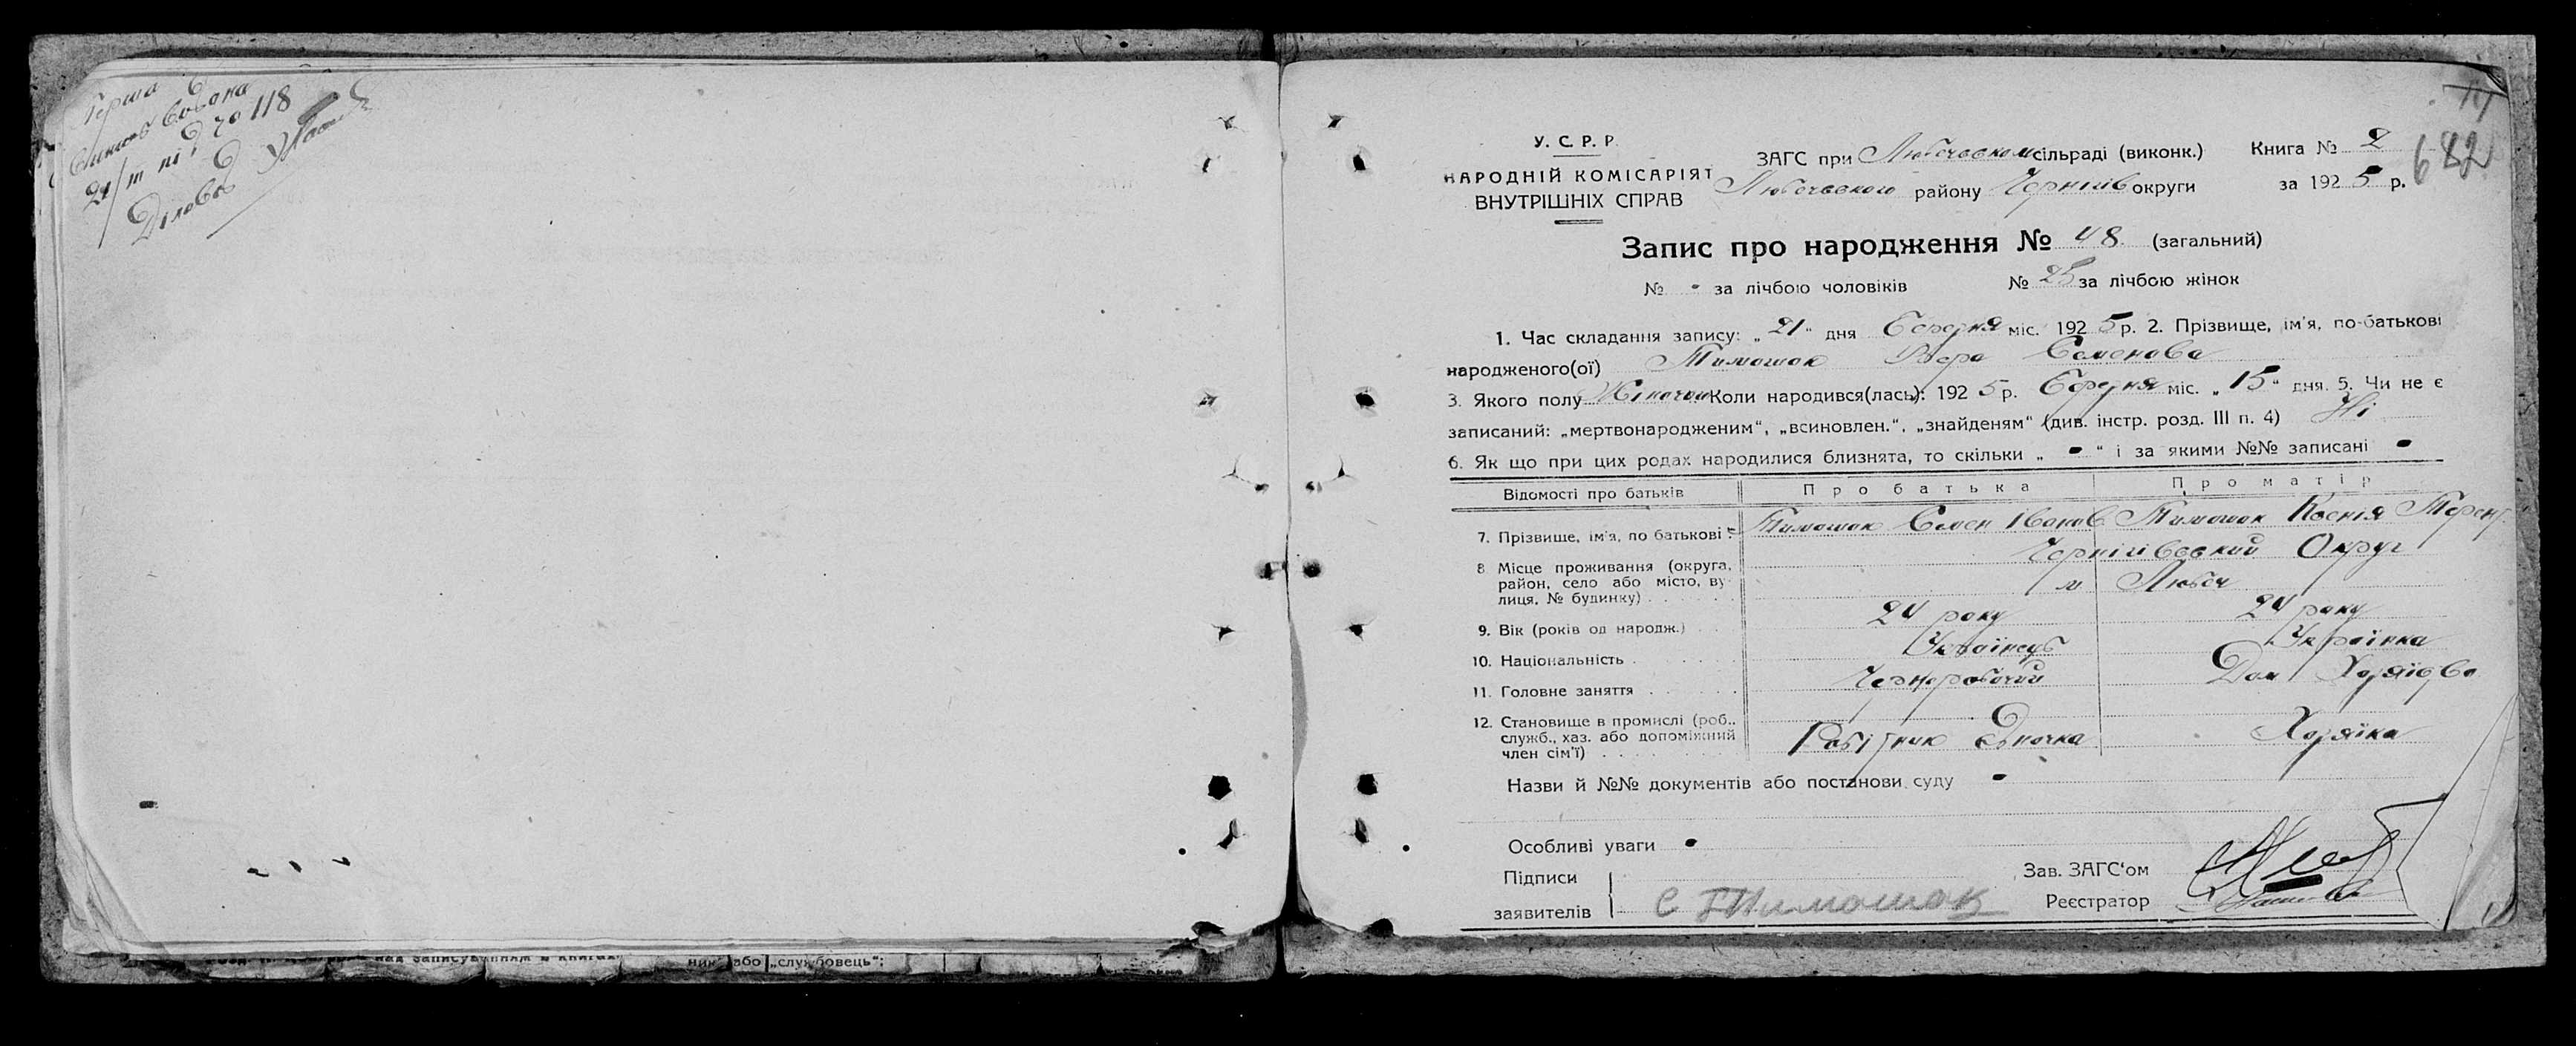 Перша
118
У. С. Р. Р.
НАРОДНІЙ КОМІСАРІЯТ
ВНУТРІШНІХ СПРАВ
ЗАГС при Любеческом сільраді (виконк.) Книга № 2
682
Любеческого району Чернігів округи за 1925 р.
Запис про народження № 48 (загальний)
№ - за лічбою чоловіків № 25 за лічбою жінок
1. Час складання запису: „21“ дня міс. 1925 р. 2. Прізвище, ім'я, по-батькові
народженого(ої) Тимошок Вера Семенова
3. Якого полу Жіночои Коли народився(лась): 1925 р. міс. „15“ дня. 5. Чи не є
записаний: „мертвонародженим“, „всиновлен.“, „знайденям“ (див. інстр. розд. III п. 4) Ні
6. Як що при цих родах народилися близнята, то скільки „ - “ і за якими №№ записані -
Відомості про батьків Про батька Про матір
7. Прізвище, ім'я, по батькові: Тимошок Семен Іванов Тимошок Ксенія Терент
8 Місце проживання (округа, район, село або місто, вулиця, № будинку) Чернігівський Округ
м Любеч
9. Вік (років од народж.) 24 року 24 року
10. Національність Українець Українка
11. Головне заняття Чернорабочий Дом Хозяїство
12. Становище в промислі (роб.,
служб., хаз. або допоміжний
член сім'ї) Робітник Одиночка Хозяїка
Назви й №№ документів або постанови суду -
Особливі уваги -
Підписи Зав. ЗАГС'ом
заявителів С Тимошок Реєстратор
над записуванням в книгах
або „службовець“: